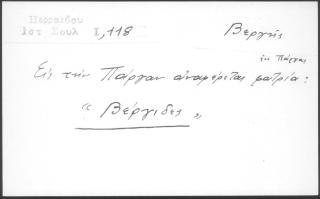 Περραιβου
Ιστ Σουλ Ι,118
Βεργής
ἐκ Πάργας
Εἰς τὴν Πάργαν ἀναφέρεται πατριά:
“ Βέργιδες „